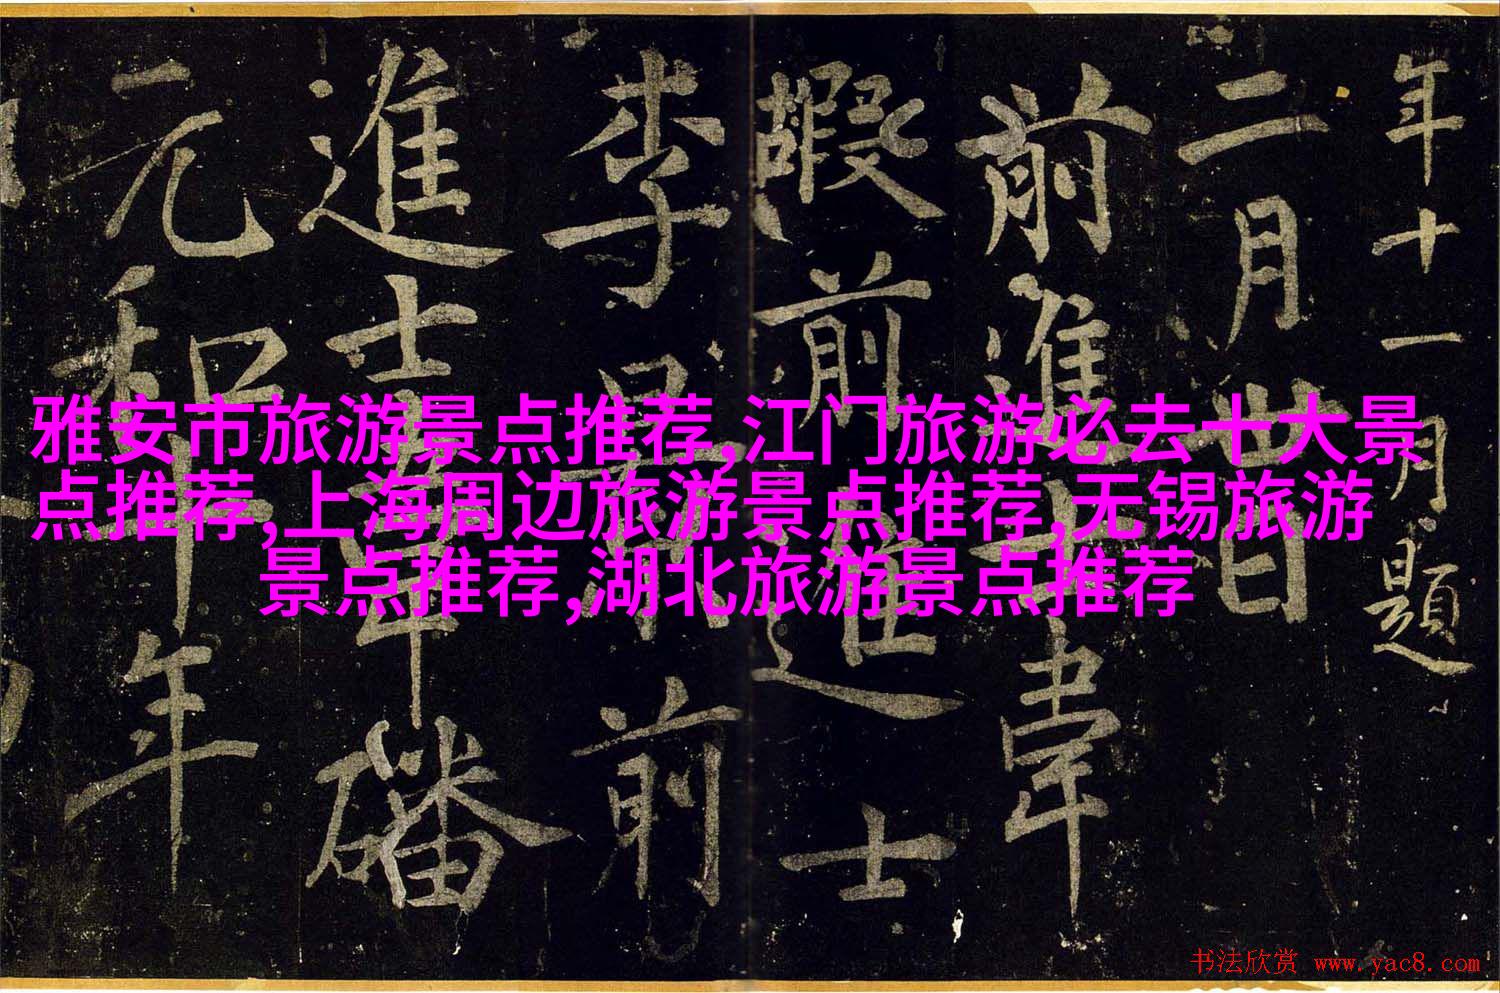 雅安市旅游景点推荐,江门旅游必去十大景
点推荐,上海周边旅游景点推荐,无锡旅游
景点推荐,湖北旅游景点推荐
年十一月題
二月廿日
前進士韋
蝦前進士
李前
進士磻
元和十年
书法欣赏 www.yac8.com